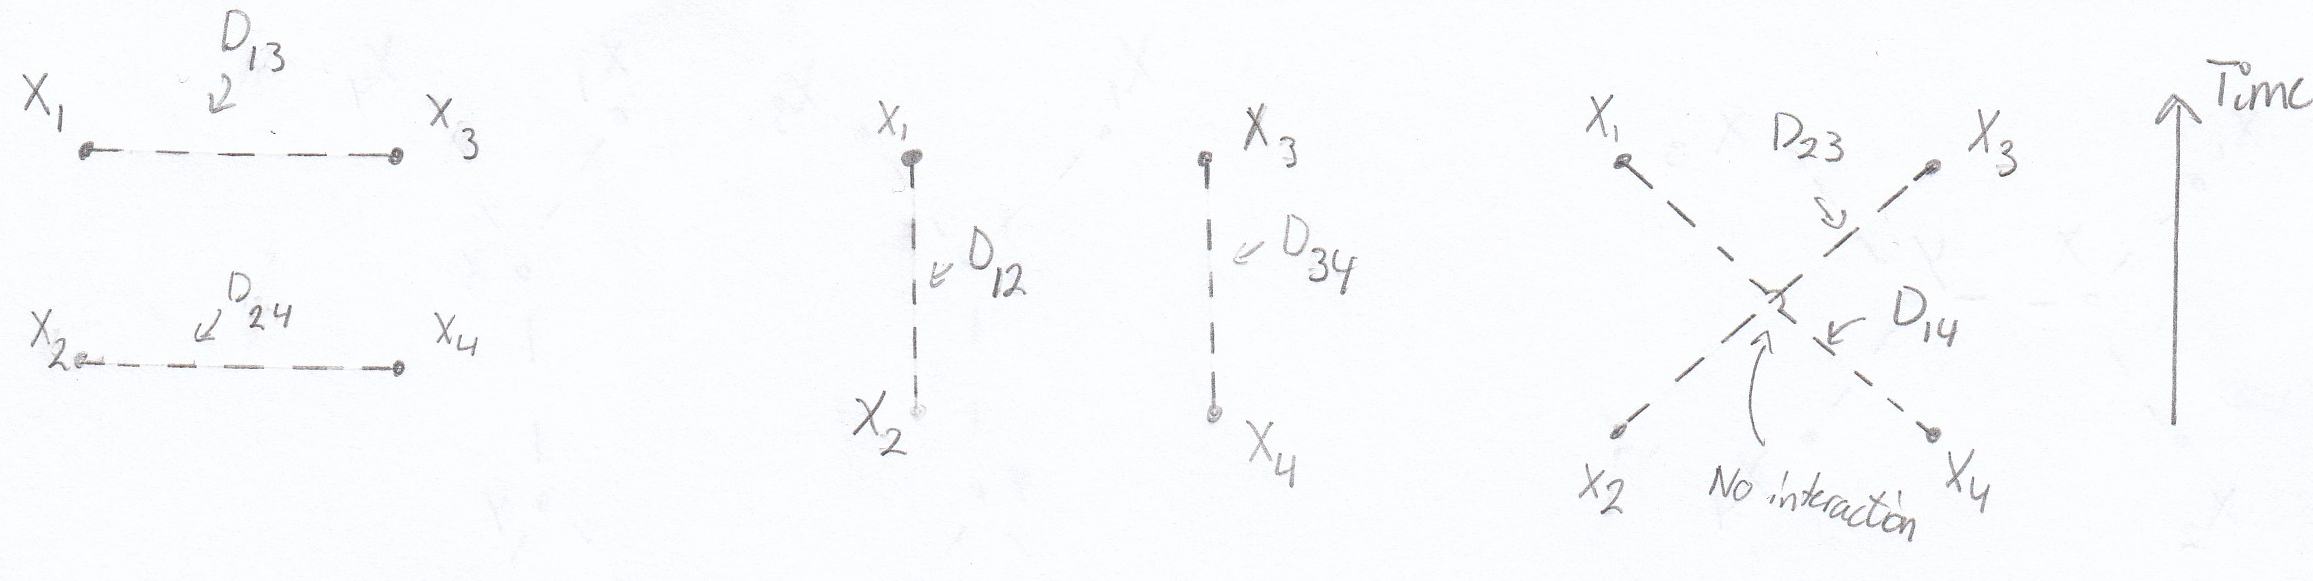 D13
X1
X3
D24
X2
X4
X1
X3
D12
D34
X2
X4
X1
D23
X3
D14
X2
X4
No interaction
Time